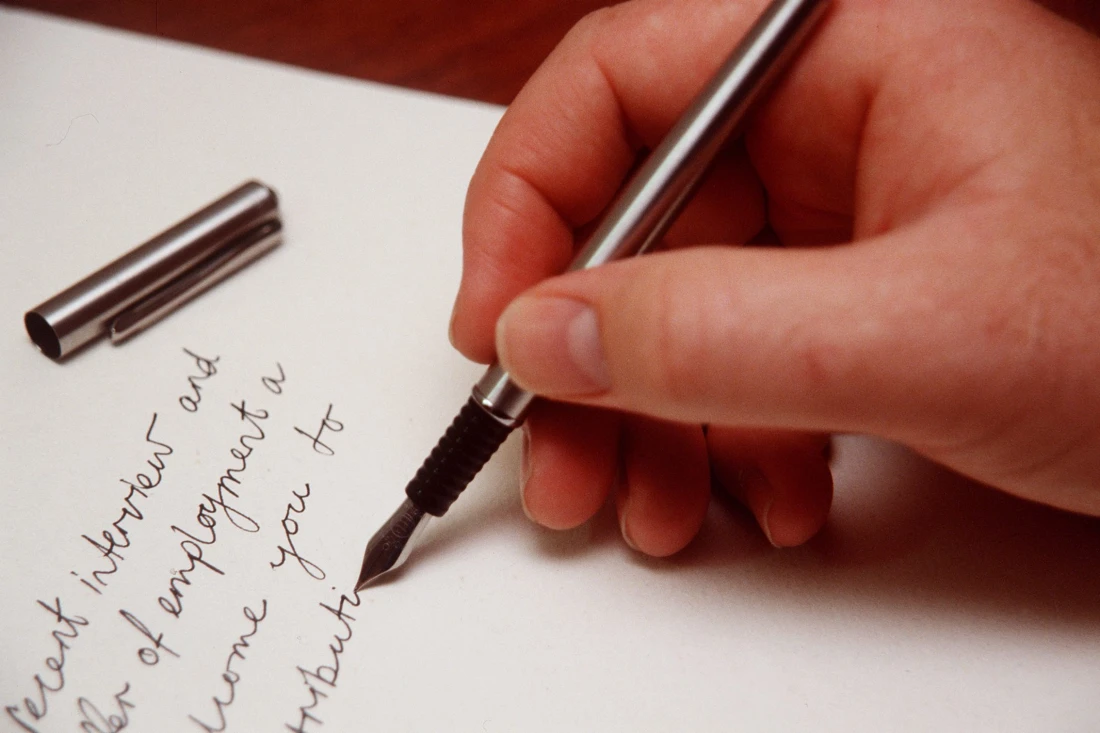 recent interview and
ffer of employment a
lcome you to
tributi